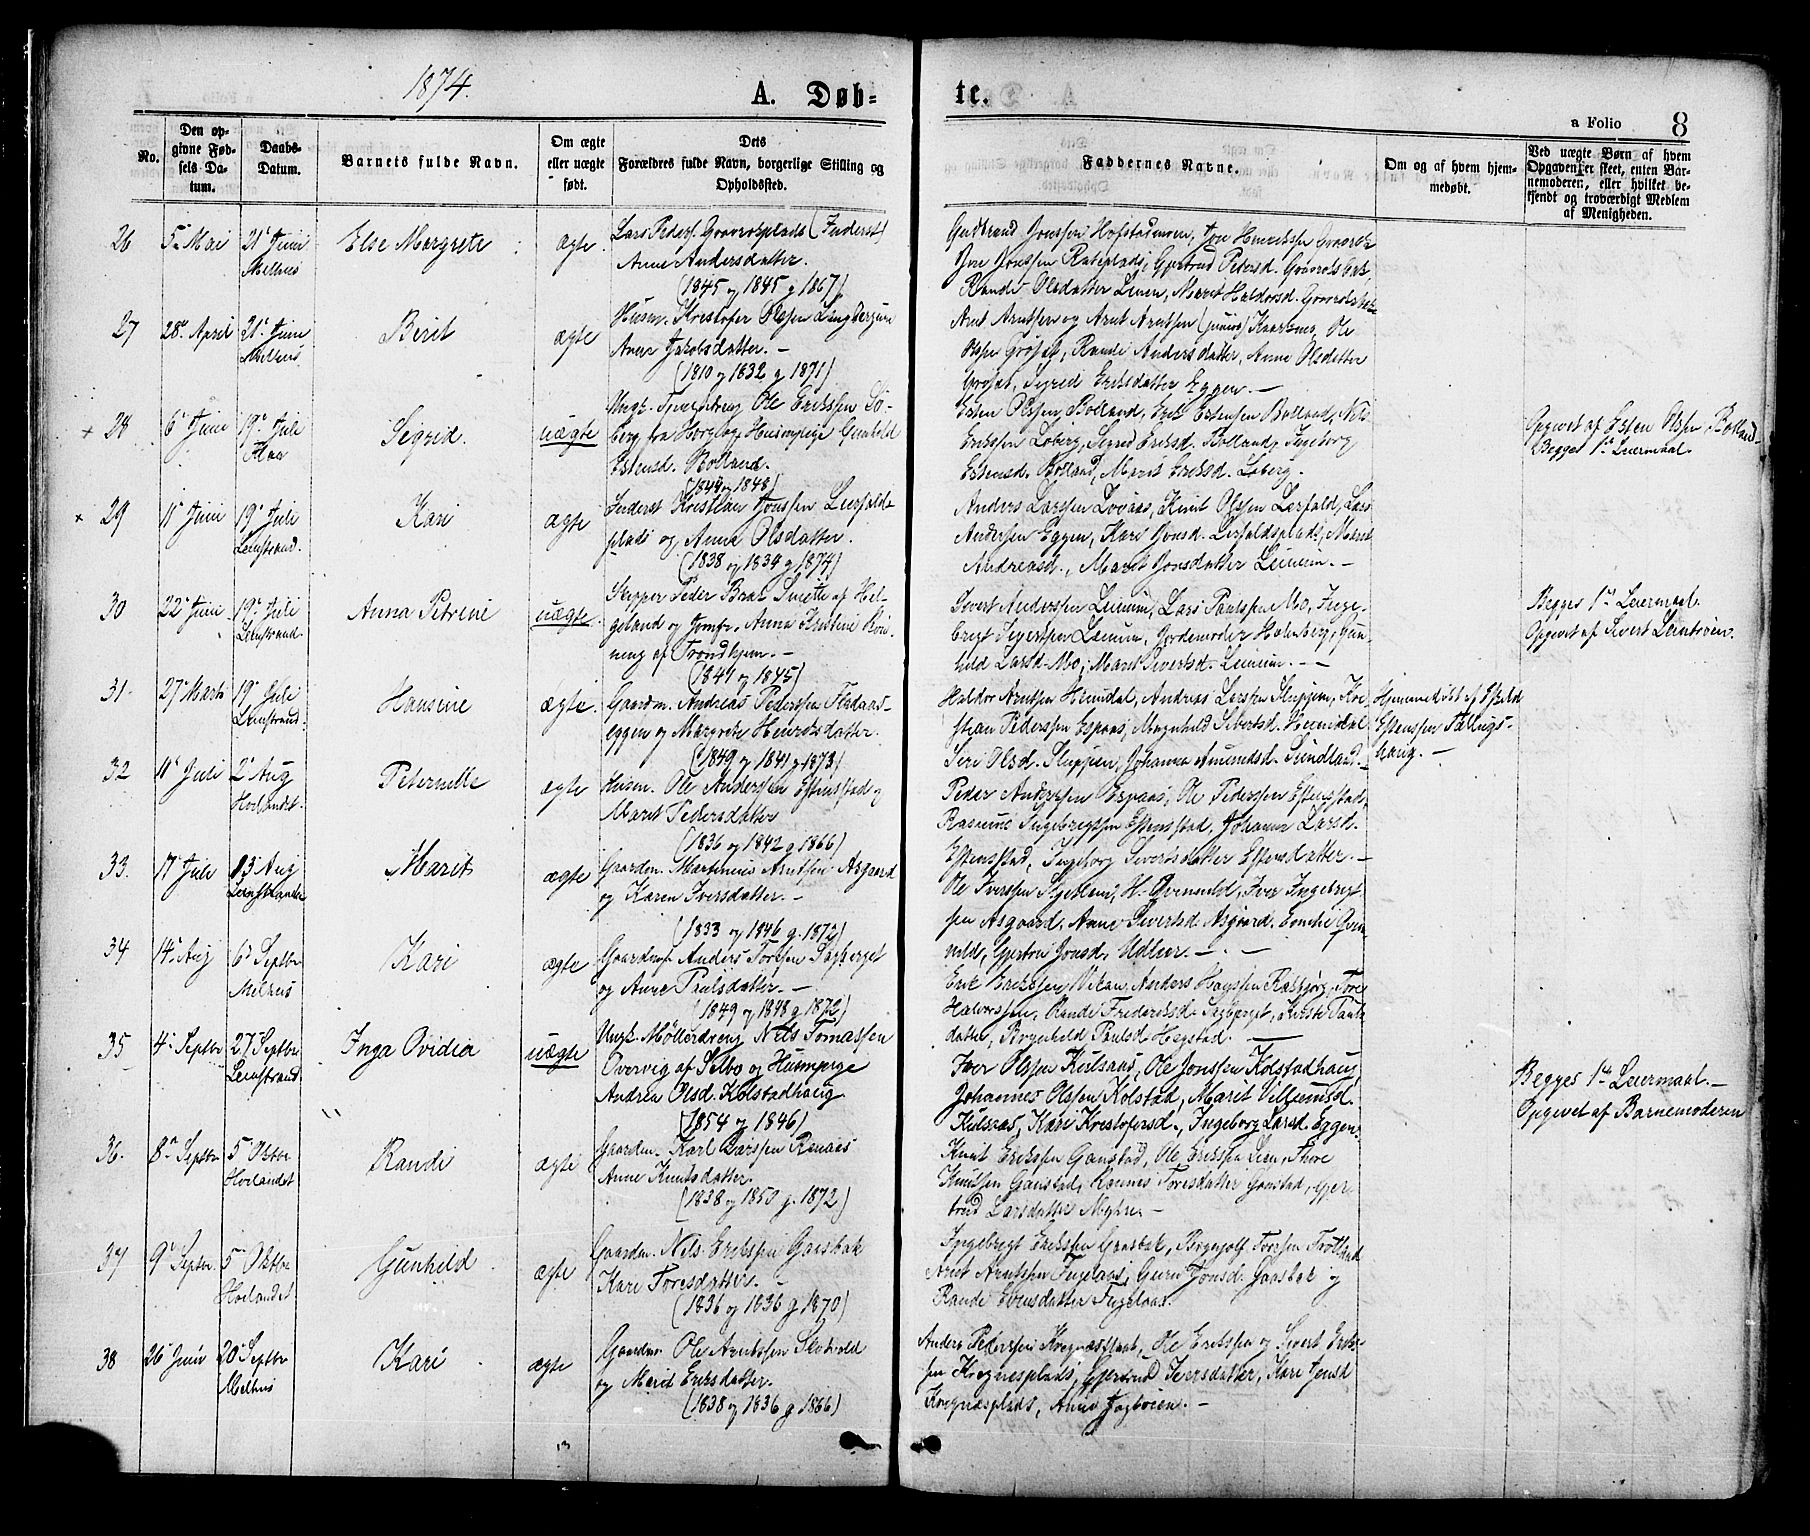 1874.
A. Døb-
te.
a Folio 8
No.
Den op-
givne Fød-
sels Da-
tum.
Daabs-
Datum.
Barnets fulde Navn.
Om ægte
eller uægte
født.
Dets
Forældres fulde Navn, borgerlige Stilling og
Opholdssted.
Faddernes Navne.
Om og af hvem hjem-
medøbt.
Ved uægte Børn af hvem
Opgaven er skeet, enten Bar-
nemoderen, eller hvilket be-
kjendt og troværdigt Medlem
af Menigheden.
26
5te Mai
21de Juni
Melhus
Else Margrete
ægte
Lars Peders. Graverokplads (Inderst)
Anne Andersdatter.
(1845 og 1845 g 1867)
Gudbrand Jonssen Hofstadmoen, Jon Henrikssen
Jon Jonssen Gjertrud Petersd.
Randi Olsdatter Marit Haldorsd.
27
28de April
21de Juni
Melhus
Berit
ægte
Husm. Kristofer Olssen
Anne Jakobsdatter. -
(1810 og 1832 g 1871)
Arnt Arntssen og Arnt Arntssen (junior) Ole
Olssen Randi Andersdatter, Anne Olsdatter
Sigrid Eriksdatter Eggen. -
28
6te Juni
19de Juli
Flaa
Segrid.
uægte
Ungk. Tjenedreng Ole Erikssen Lø-
berg fra Horg og Huusmpige Gunhild
Estensd. Bolland.
(1849 og 1848)
Esten Olssen Bolland, Erik Estensen Bolland, Nils
Erikssen Løberg, Sigrid Eriksd. Bolland, Ingeborg
Estensd. Bolland, Marit Eriksd. Løberg.
Opgivet af Esten Olssen Bolland
Begges 1ste Leiermaal.
29
11te Juni
19de Juli
Leinstrand.
Kari
ægte
Inderst Kristian Jonssen Leirfalds
plads og Anna Olsdatter.
(1838 og 1839 g 1874)
Anders Larssen Lovaas, Knut Olssen Lerfald, Lars
Andersen Eggen, Kari Jonsd. Lerfaldsplads, Marit
Andreasd., Marit Jonsdatter Leinum. -
30
22de Juni
19de Juli
Leinstrand.
Anna Petrine
uægte.
Skipper Peder Braa af Hel-
geland og Jomfr. Anna Kristine Røn-
ning af Trondhjem. -
(1841 og 1845)
Sivert Anderssen Leinum, Lars Paulssen Mo, Inge-
brigt Sivertssen Leinum, Jordemoder Holmberg, Gun-
hild Larsd. Mo, Marit Sivertsd. Leinum. - -
Begges 1ste Leiermaal.
Opgivet af Sivert Leinum.
31
27de Marts
19de Juli
Leinstrand.
Hansine
ægte.
Gaardm. Andreas Pederssen Flotaas-
eggen og Margrete Henriksdatter.
(1849 og 1841 g 1873)
Haldor Arntsen Heimdal, Andreas Larssen Sluppen, Kri-
stian Pederssen Espaas, Magnhild Sivertsd. Heimdal
Siri Olsd. Sluppen, Johanna Amundsd. Sundland.
Hjemmedøbt af Eskild
Estenssen Tillings-
haug. -
32
11te Juli
2de Aug
Hovlandet.
Peternelle
ægte
Husm. Ole Anderssen Estenstad og
Marit Pedersdatter
(1836 og 1842 g 1866)
Peder Anderssen Espaas, Ole Pederssen Estenstad,
Rasmus Ingebrigtsen Estenstad, Johanna Larsd.
Estenstad, Ingeborg Sivertsdatter Estensdatter. -
33.
17de Juli
13de Aug
Leinstranden
Marit
ægte
Gaardm. Martinius Arntsen Asgaard
og Karen Iversdatter. -
(1833 og 1846 g. 1872)
Ole Iverssen Skjetlein, H. Qvenild, Iver Ingebrigt-
sen Asgaard, Anne Sivertsd. Asgaard, Emelie Qve-
nild, Gjertru Jonsd. Udleer. - . -
34
14de Aug
6te Septbr
Melhus
Kari
ægte
Gaardm. Anders Toresen Sagberget
og Anne Paulsdatter. -
(1849 og 1848 g 1872)
Erik Erikssen Vikan, Anders Haagssen Tore
Halvorssen, Randi Frederiksd. Sagberget, Kirsti Pauls-
datter, Brynhild Paulsd Hagstad. -
35
4de Septbr
27de Septbr
Leinstrand
Inga Ovidia
uægte
Ungk. Møllerdreng Nils Tomassen
Overvig af Selbo og Huusmpige
Andrea Olsd. Kolstadhaug
(1854 og 1846)
Iver Olssen Kulsaas, Ole Jonssen Kolstadhaug
Johannes Olssen Kolstad, Marit Villumsd.
Kulsaas, Kari Kristofersd., Ingeborg Larsd. Eggen
Begges 1ste Leiermaal. -
Opgivet af Barnemoderen
36.
8de Septbr
5te Oktbr
Hovlandet
Randi
ægte
Gaardm. Karl Larssen Rønaas
Anne Knutsdatter.
(1838 og 1850 g. 1872)
Knut Erikssen Gaustad, Ole Erikssen Leer, Thore
Knutssen Gaustad, Rønnes Toresdatter Gaustad, Gjer-
trud Larsdatter Myhre. -
37
9de Septbr.
5te Oktbr
Hovlandet
Gunhild
ægte
Gaardm. Nils Erikssen Gaasbak
Kari Toresdatter. -
(1836 og 1836 g 1870)
Ingebrigt Erikssen Gaasbak, Tørresen Trotland
Arnt Arntssen Fuglaas, Guru Jonsd. Gaasbak og
Randi Fuglaas.
38
26de Juni
20de Septbr
Melhus
Kari
ægte
Gaardm. Ole Arntssen
og Marit Eriksdatter.
(1838 og 1836 g 1866)
Anders Pederssen Krognæsplads, Ole Erikssen og Sivert Eriks-
sen Krognesplads, Gjertrud Iversdatter, Kari Jensd
Krognæsplads, Anne -